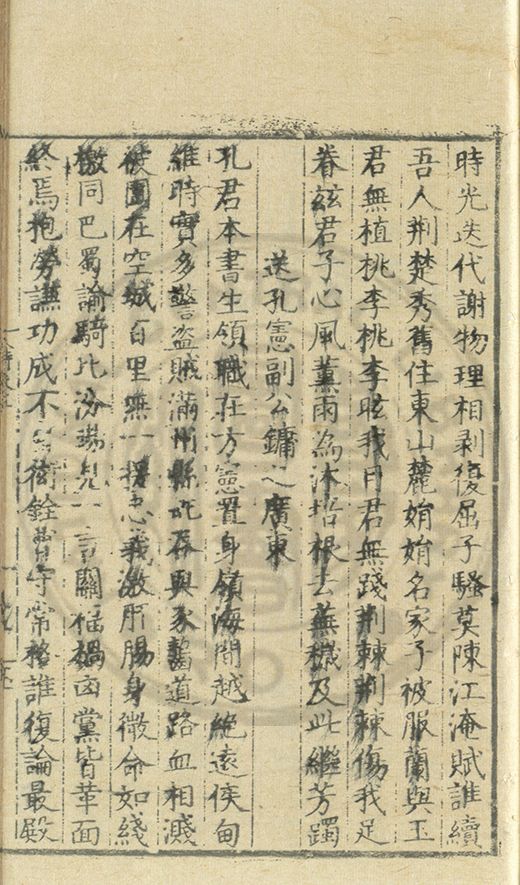 時光迭代謝物理相剥復屈子騷莫陳江淹賦誰續
吾人荆楚秀舊住東山麓娟娟名家子被服蘭與玉
君無植桃李桃李眩我目君無踐荆棘荆棘傷我足
眷兹君子心風薰雨為沐培根去蕪穢及此繼芳躅
送孔憲副公鏞之廣東
孔君本書生領職在方憲置身嶺海間越絶遠侯甸
維時實多警盜賊滿州縣吞與豕齧道路血相濺
被圍在空城百里無一援忠義激肝腸身微命如綫
檄同巴蜀諭騎比汾陽見一言關福禍囟黨皆革面
終焉抱勞謙功成不衒銓曹守常格誰復論最殿